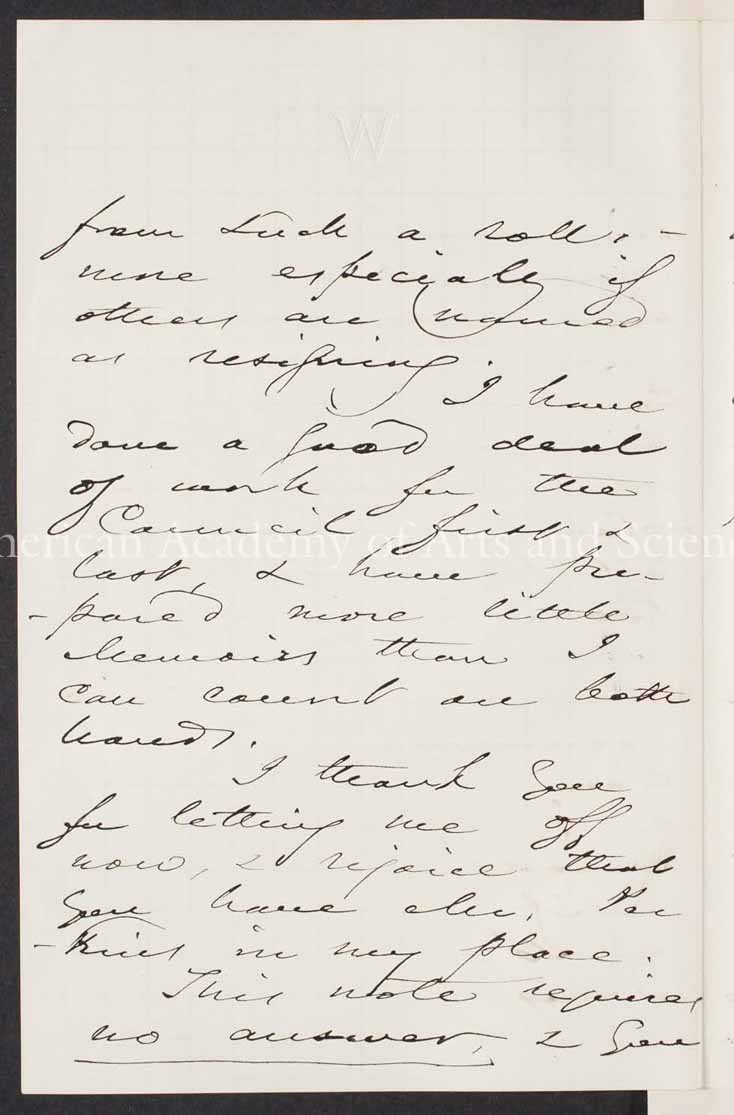 W
from such a roll: -
more especially if
others are named
as resigning. I have
done a good deal
of work for the
Council first &
American Academy of Arts and Sciences
last, & have pre-
-pared more little
Memoirs than I
can count on both
hands.
I thank you
for letting me off
now, & rejoice that
you have Mr. Per
-kins in my place.
This note requires
no answer, & you